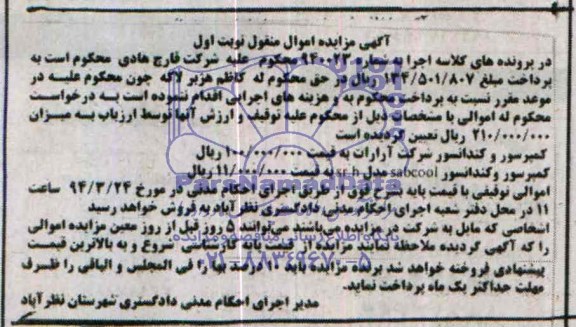 آگهی مزایده اموال منقول نوبت اول
در پرونده های کلاسه اجرا به شماره ۹۴۰۰۲۳ محکوم علیه شرکت قارچ هادی محکوم است به
پرداخت مبلغ ۱۳۴/۵۰۱/۸۰۷ ریال در حق محکوم له کاظم هژبر لاله چون محکوم علیه در
موعد مقرر نسبت به پرداخت محکوم به و هزینه های اجرایی اقدام ننموده است به درخواست
محکوم له اموالی با مشخصات ذیل از محکوم علیه توقیف و ارزش آنها توسط ارزیاب به میزان
۲۱۰/۰۰۰/۰۰۰ ریال تعیین گردیده است
کمپرسور و کندانسور شرکت آرارات به قیمت ۱۰۰/۰۰۰/۰۰۰ ریال
کمپرسور وکندانسور sabcool مدل sr.h به قیمت ۱۱/۰۰۰/۰۰۰ ریال
اموالی توقیفی با قیمت پایه به شرح فوق از طریق اجرای احکام مدنی در مورخ ۹۴/۳/۲۴ ساعت
۱۱ در محل دفتر شعبه اجرای احکام مدنی دادگستری نظر آباد به فروش خواهد رسید
اشخاصی که مایل به شرکت در مزایده میباشند می‌توانند ۵ روز قبل از روز معین مزایده اموالی
را که آگهی گردیده ملاحظه نمایند مزایده از قیمت پایه کارشناسی شروع و به بالاترین قیمت
پیشنهادی فروخته خواهد شد برنده مزایده باید ۱۰ درصد بها را فی المجلس و الباقی را ظرف
مهلت حداکثر یک ماه پرداخت نماید.
مدیر اجرای احکام مدنی دادگستری شهرستان نظر آباد
ParsNamadData
۰۲۱-۸۸۳۴۹۶۷۰-۵